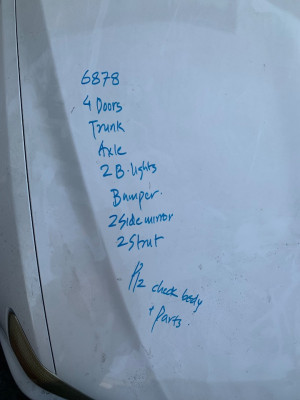 6878
4 Doors
Trunk
Axle
2 B.lights
Bumper.
2 Side mirror
2 Strut
Plz check body
+ Parts.